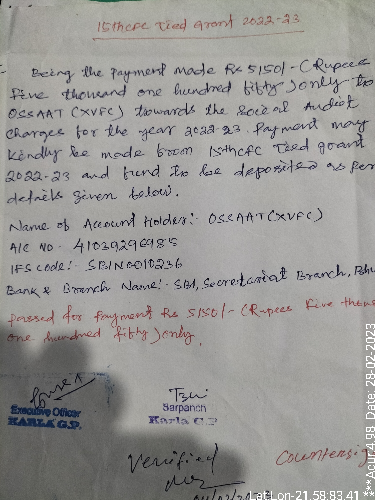 15thCFC Tied grant 2022-23
Being the payment made Rs 5150/- (Rupees
five thousand one hundred fifty) only to
OSSAAT (XVFC) towards the Social Audit
charges for the year 2022-23. Payment may
kindly be made from 15thCFC Tied grant
2022-23 and fund to be deposited as per
details given below.
Name of Account Holder:- OSSAAT (XVFC)
A/C NO -
IFS Code:- SBIN0010236
Bank & Branch Name:- SBI, Secretariat Branch,
passed for payment Rs 5150/- (Rupees five thous
one hundred fifty) only.
Executive Officer
KARLA G.P.
Sarpanch
Karla G.P
Verified
Countersig
Lat:Lon-21.58:83.41 ***Acur:4.98 Date: 28-02-2023